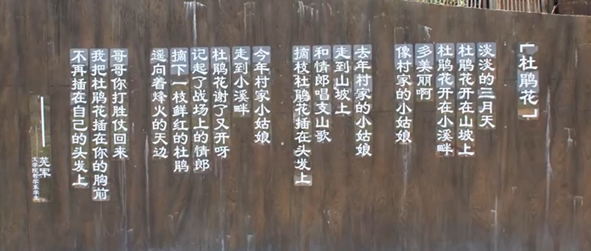 「杜鹃花」
淡淡的三月天
杜鹃花开在山坡上
杜鹃花开在小溪畔
多美丽啊
像村家的小姑娘
去年村家的小姑娘
走到山坡上
和情郎唱支山歌
摘枝杜鹃花插在头发上
今年村家小姑娘
走到小溪畔
杜鹃花谢了又开呀
记起了战场上的情郎
摘下一枝鲜红的杜鹃
遥向着烽火的天边
哥哥你打胜仗回来
我把杜鹃花插在你的胸前
不再插在自己的头发上
芜军